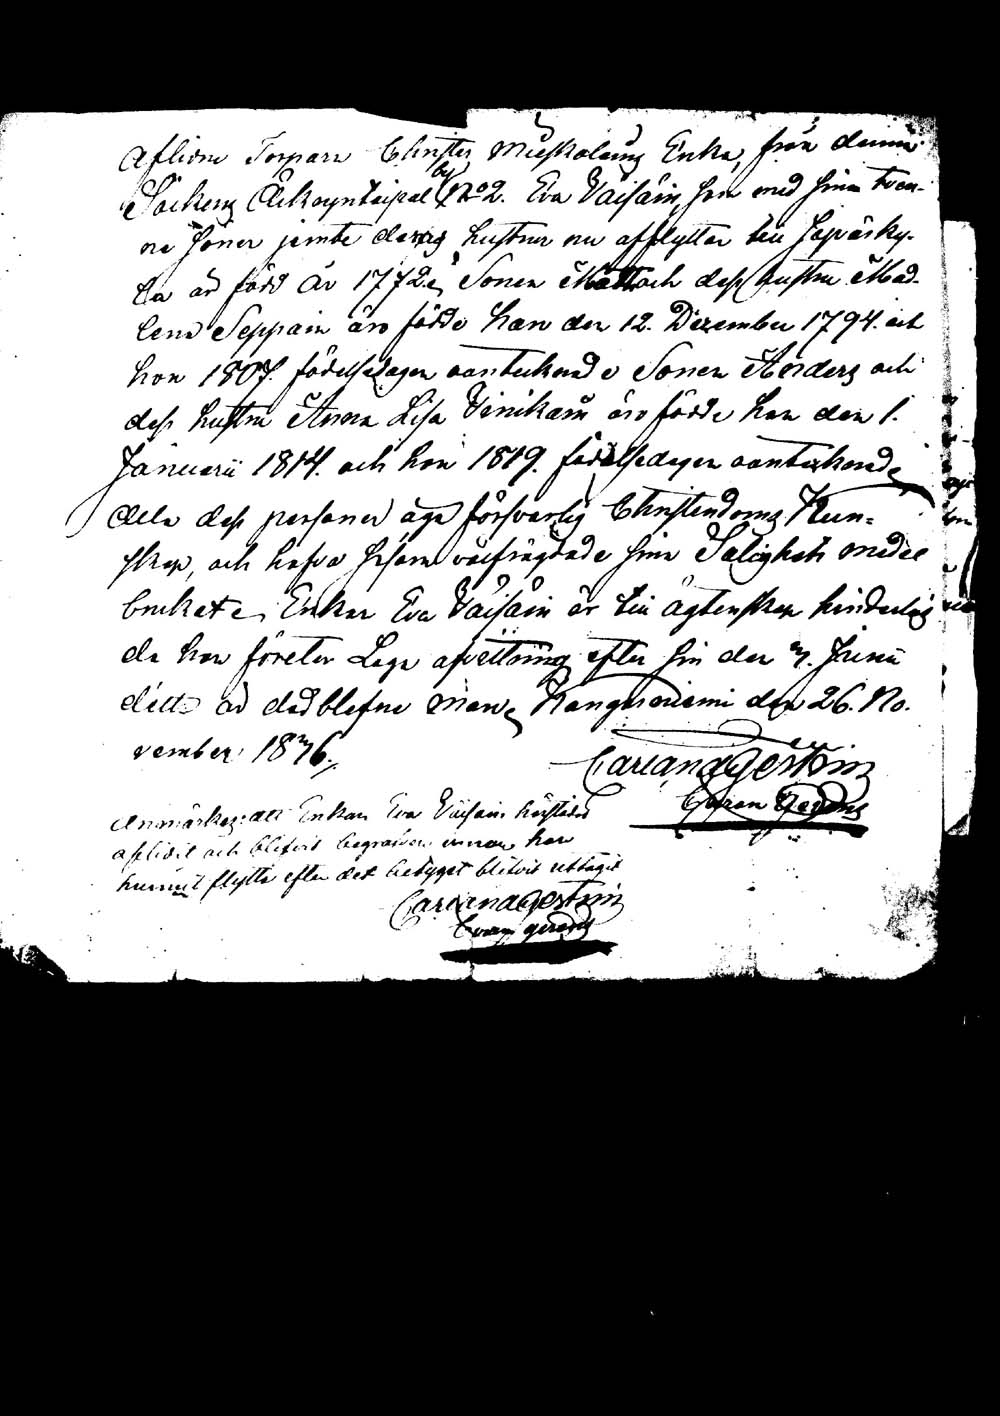 Aflidne Torparn Christer Mieskolains Enka, från denna
Sockens by N:o 2. Eva Väisäin, som med sina tven-
ne Söner jemte deras hustrur nu afflyttar till
är född År 1772, Sonen Matts och dess hustru Mad-
lena Seppain äro födde han den 12. December 1794. och
hon 1807. födelsedagen oantecknad, Sonen Anders och
dess hustru Anna Lisa Vinikain äro födde han den 1.
Januarii 1814. och hon 1819. födelsedagen oantecknad,
Alla dess personer äga försvarlig Christendoms Kun-
skap, och hafva såsom välfrägdade sina Salighets medel
brukat, Enkan Eva Väisäin är till ägtenskap hinderlös
da hon företer Laga afvittring efter sin den Junii
detta år dödblefne Man, Kangasniemi den 26. No-
vember 1836.
Anmärkes: att Enkan Eva Väisäin härstädes
aflidit och blifvit begrafven innan hon
hunnit flytta efter det betyget blifvit uttagit